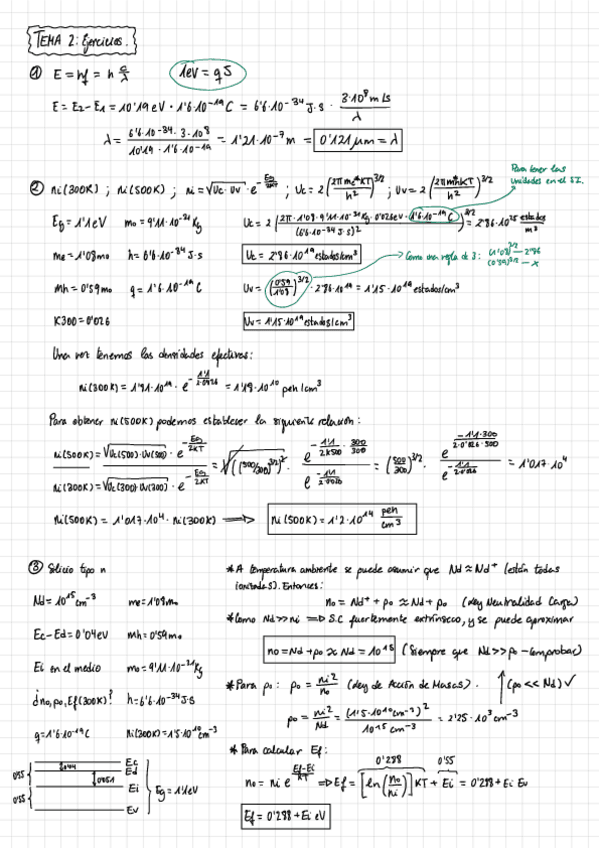 TEMA 2: Ejercicios.
① E = hf = h c/λ    1eV = q J
E = E2 - E1 = 10'19 eV · 1'6·10^-19 C = 6'6·10^-34 J·s · 3·10^8 m/s / λ
λ = 6'6·10^-34 · 3·10^8 / 10'19 · 1'6·10^-19 = 1'21·10^-7 m = 0'121 μm = λ
Para tener las
unidades en el S.I.
② ni(300K) ; ni(500K) ; ni = √(Uc·Uv) · e^(-Eg/2KT) ; Uc = 2 (2πme*KT/h²)^3/2 ; Uv = 2 (2πmh*KT/h²)^3/2
Eg = 1'1eV    mo = 9'11·10^-31 Kg    Uc = 2 (2π·1'08·9'11·10^-31 Kg·0'026eV·1'6·10^-19 C / (6'6·10^-34 J·s)²)^3/2 = 2'86·10^25 estados/m³
me = 1'08mo    h = 6'6·10^-34 J·s    Uc = 2'86·10^19 estados/cm³
Como una regla de 3: (1'08)^3/2 — 2'86
(0'59)^3/2 — x
mh = 0'59mo    q = 1'6·10^-19 C    Uv = (0'59/1'08)^3/2 · 2'86·10^19 = 1'15·10^19 estados/cm³
K300 = 0'026    Uv = 1'15·10^19 estados/cm³
Una vez tenemos las densidades efectivas:
ni(300K) = 1'91·10^19 · e^(-1'1/2·0'026) = 1'19·10^10 peh/cm³
Para obtener ni(500K) podemos establecer la siguiente relación:
ni(500K) = √(Uc(500)·Uv(500)) · e^(-Eg/2KT)
= √((500/300)^3/2)² · e^(-1'1/2K500 · 300/300) / e^(-1'1/2·0'026) = (500/300)^3/2 · e^(-1'1·300/2·0'026·500) / e^(-1'1/2·0'026) = 1'017·10^4
ni(300K) = √(Uc(300)·Uv(300)) · e^(-Eg/2KT)
ni(500K) = 1'017·10^4 · ni(300K) ⟹ ni(500K) = 1'2·10^14 peh/cm³
③ Silicio tipo n
Nd = 10^15 cm^-3    me = 1'08mo
Ec - Ed = 0'04eV    mh = 0'59mo
Ei en el medio    mo = 9'11·10^-31 Kg
¿no, po, Ef(300K)?    h = 6'6·10^-34 J·s
q = 1'6·10^-19 C    ni(300K) = 1'5·10^10 cm^-3
0'55
0'55
0'04
Ec
Ed
Ei
Ev
Eg = 1'1eV
* A temperatura ambiente se puede asumir que Nd ≈ Nd+ (están todas
ionizadas). Entonces:
no = Nd+ + po ≈ Nd + po (Ley Neutralidad Carga)
* Como Nd >> ni ⟹ S.C fuertemente extrínseco, y se puede aproximar
no = Nd + po ≈ Nd = 10^15 (Siempre que Nd >> po - comprobar)
* Para po: po = ni²/no (Ley de Acción de Masas).    (po << Nd) ✓
po = ni²/Nd = (1'5·10^10 cm^-3)² / 10^15 cm^-3 = 2'25·10^5 cm^-3
* Para calcular Ef:
0'288    0'55
no = ni e^(Ef-Ei/KT) ⟹ Ef = [ln(no/ni)] KT + Ei = 0'288 + Ei
Ef = 0'288 + Ei eV